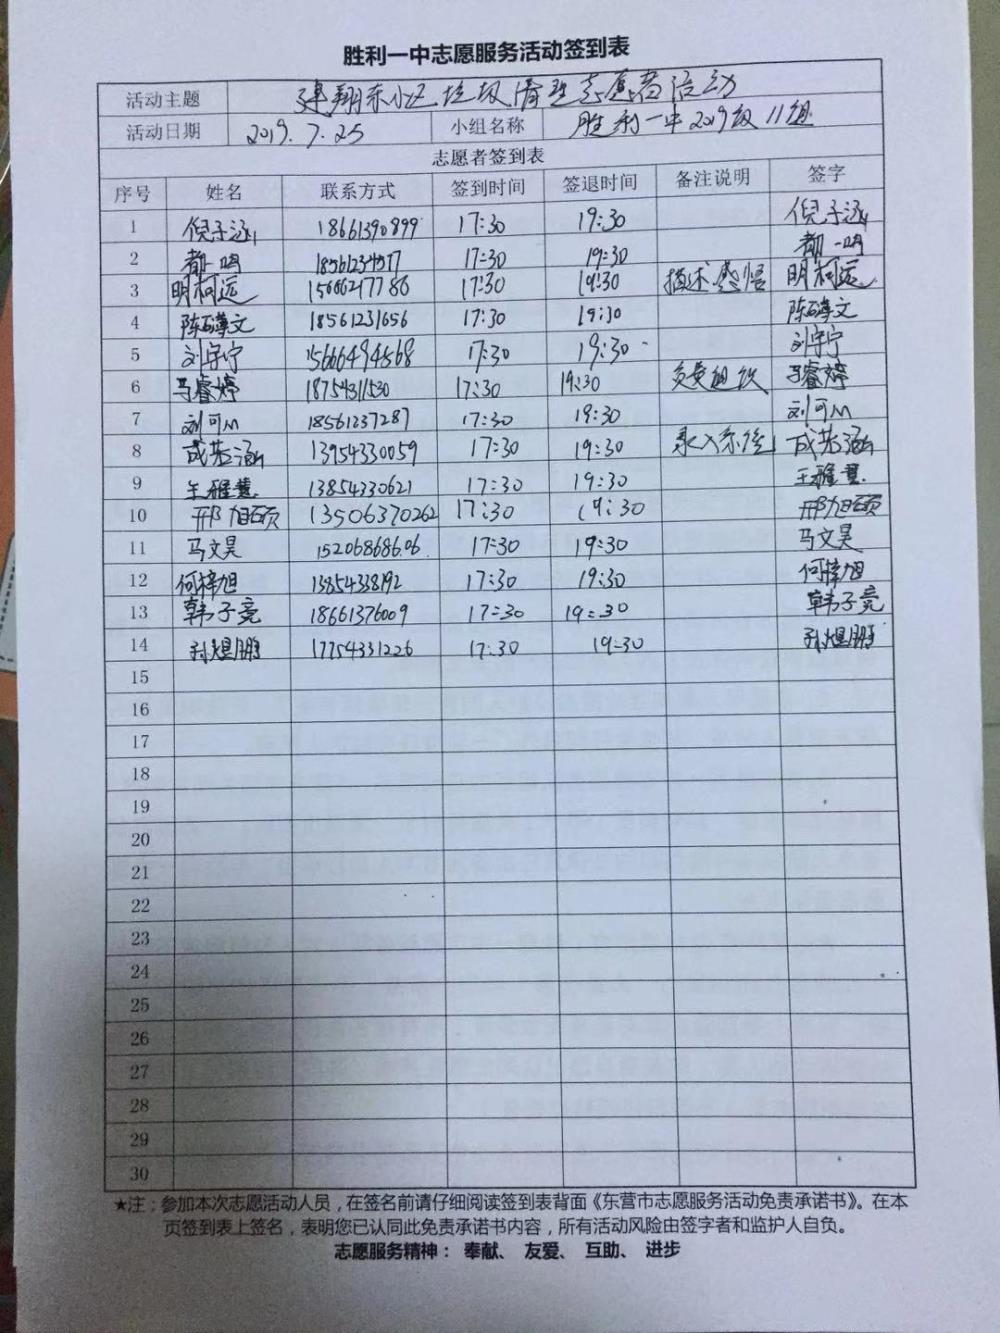 胜利一中志愿服务活动签到表
活动主题 建翔东小区垃圾清理志愿者活动
活动日期 2019.7.25 小组名称 胜利一中2019级11组
志愿者签到表
序号 姓名 联系方式 签到时间 签退时间 备注说明 签字
1 倪子涵 18661390899 17:30 19:30 倪子涵
2 都一鸣 18561234517 17:30 19:30 都一鸣
3 明柯远 15606217786 17:30 19:30 描述感悟 明柯远
4 陈 文 18561231656 17:30 19:30 陈 文
5 刘宇宁 15666494568 17:30 19:30 刘宇宁
6 马睿婷 18754311530 17:30 19:30 负责组织 马睿婷
7 刘可 18561237287 17:30 19:30 刘可
8 成若涵 13954330059 17:30 19:30 录入系统 成若涵
9 王雅慧 13854330621 17:30 19:30 王雅慧
10 邢旭硕 13506370262 17:30 19:30 邢旭硕
11 马文昊 15206868606 17:30 19:30 马文昊
12 何梓旭 13854338192 17:30 19:30 何梓旭
13 韩子竞 18661376009 17:30 19:30 韩子竞
14 孙煜鹏 17754331226 17:30 19:30 孙煜鹏
15
16
17
18
19
20
21
22
23
24
25
26
27
28
29
30
★注：参加本次志愿活动人员，在签名前请仔细阅读签到表背面《东营市志愿服务活动免责承诺书》。在本
页签到表上签名，表明您已认同此免责承诺书内容，所有活动风险由签字者和监护人自负。
志愿服务精神：奉献、友爱、互助、进步